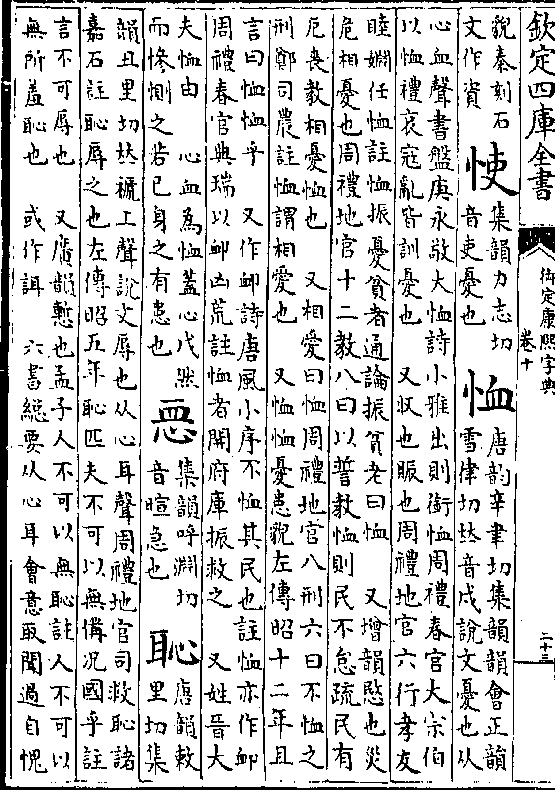 欽定四庫全書
御定康熙字典
卷十
二十三
貌秦刻石
文作資
集韻力志切
音吏憂也
恤
唐韵辛聿切集韻韻會正韻
雪律切𠀤音戌說文憂也从
心血聲書盤庚永敬大恤詩小雅出則銜恤周禮春官大宗伯
以恤禮哀寇亂皆訓憂也 又収也賑也周禮地官六行孝友
睦婣任恤註恤振憂貧者通論振貧老曰恤 又增韻愍也災
危相憂也周禮地官十二教八曰以誓教恤則民不怠疏民有
厄喪教相憂恤也 又相愛曰恤周禮地官八刑六曰不恤之
刑鄭司農註恤謂相愛也 又恤恤憂患貌左傳昭十二年且
言曰恤恤乎 又作卹詩唐風小序不恤其民也註恤亦作卹
周禮春官典瑞以卹凶荒註恤者開府庫振救之 又姓晉大
夫恤由 心血為恤蓋心戊
而惨惻之若已身之有患也
集韻呼淵切
音暄急也
恥
唐韻敕
里切集
韻丑里切𠀤褫上聲說文辱也从心耳聲周禮地官司救恥諸
嘉石註恥辱之也左傳昭五年恥匹夫不可以無備况國乎註
言不可辱也 又廣韻慙也孟子人不可以無恥註人不可以
無所羞恥也 或作誀 六書總要从心耳會意取聞過自愧